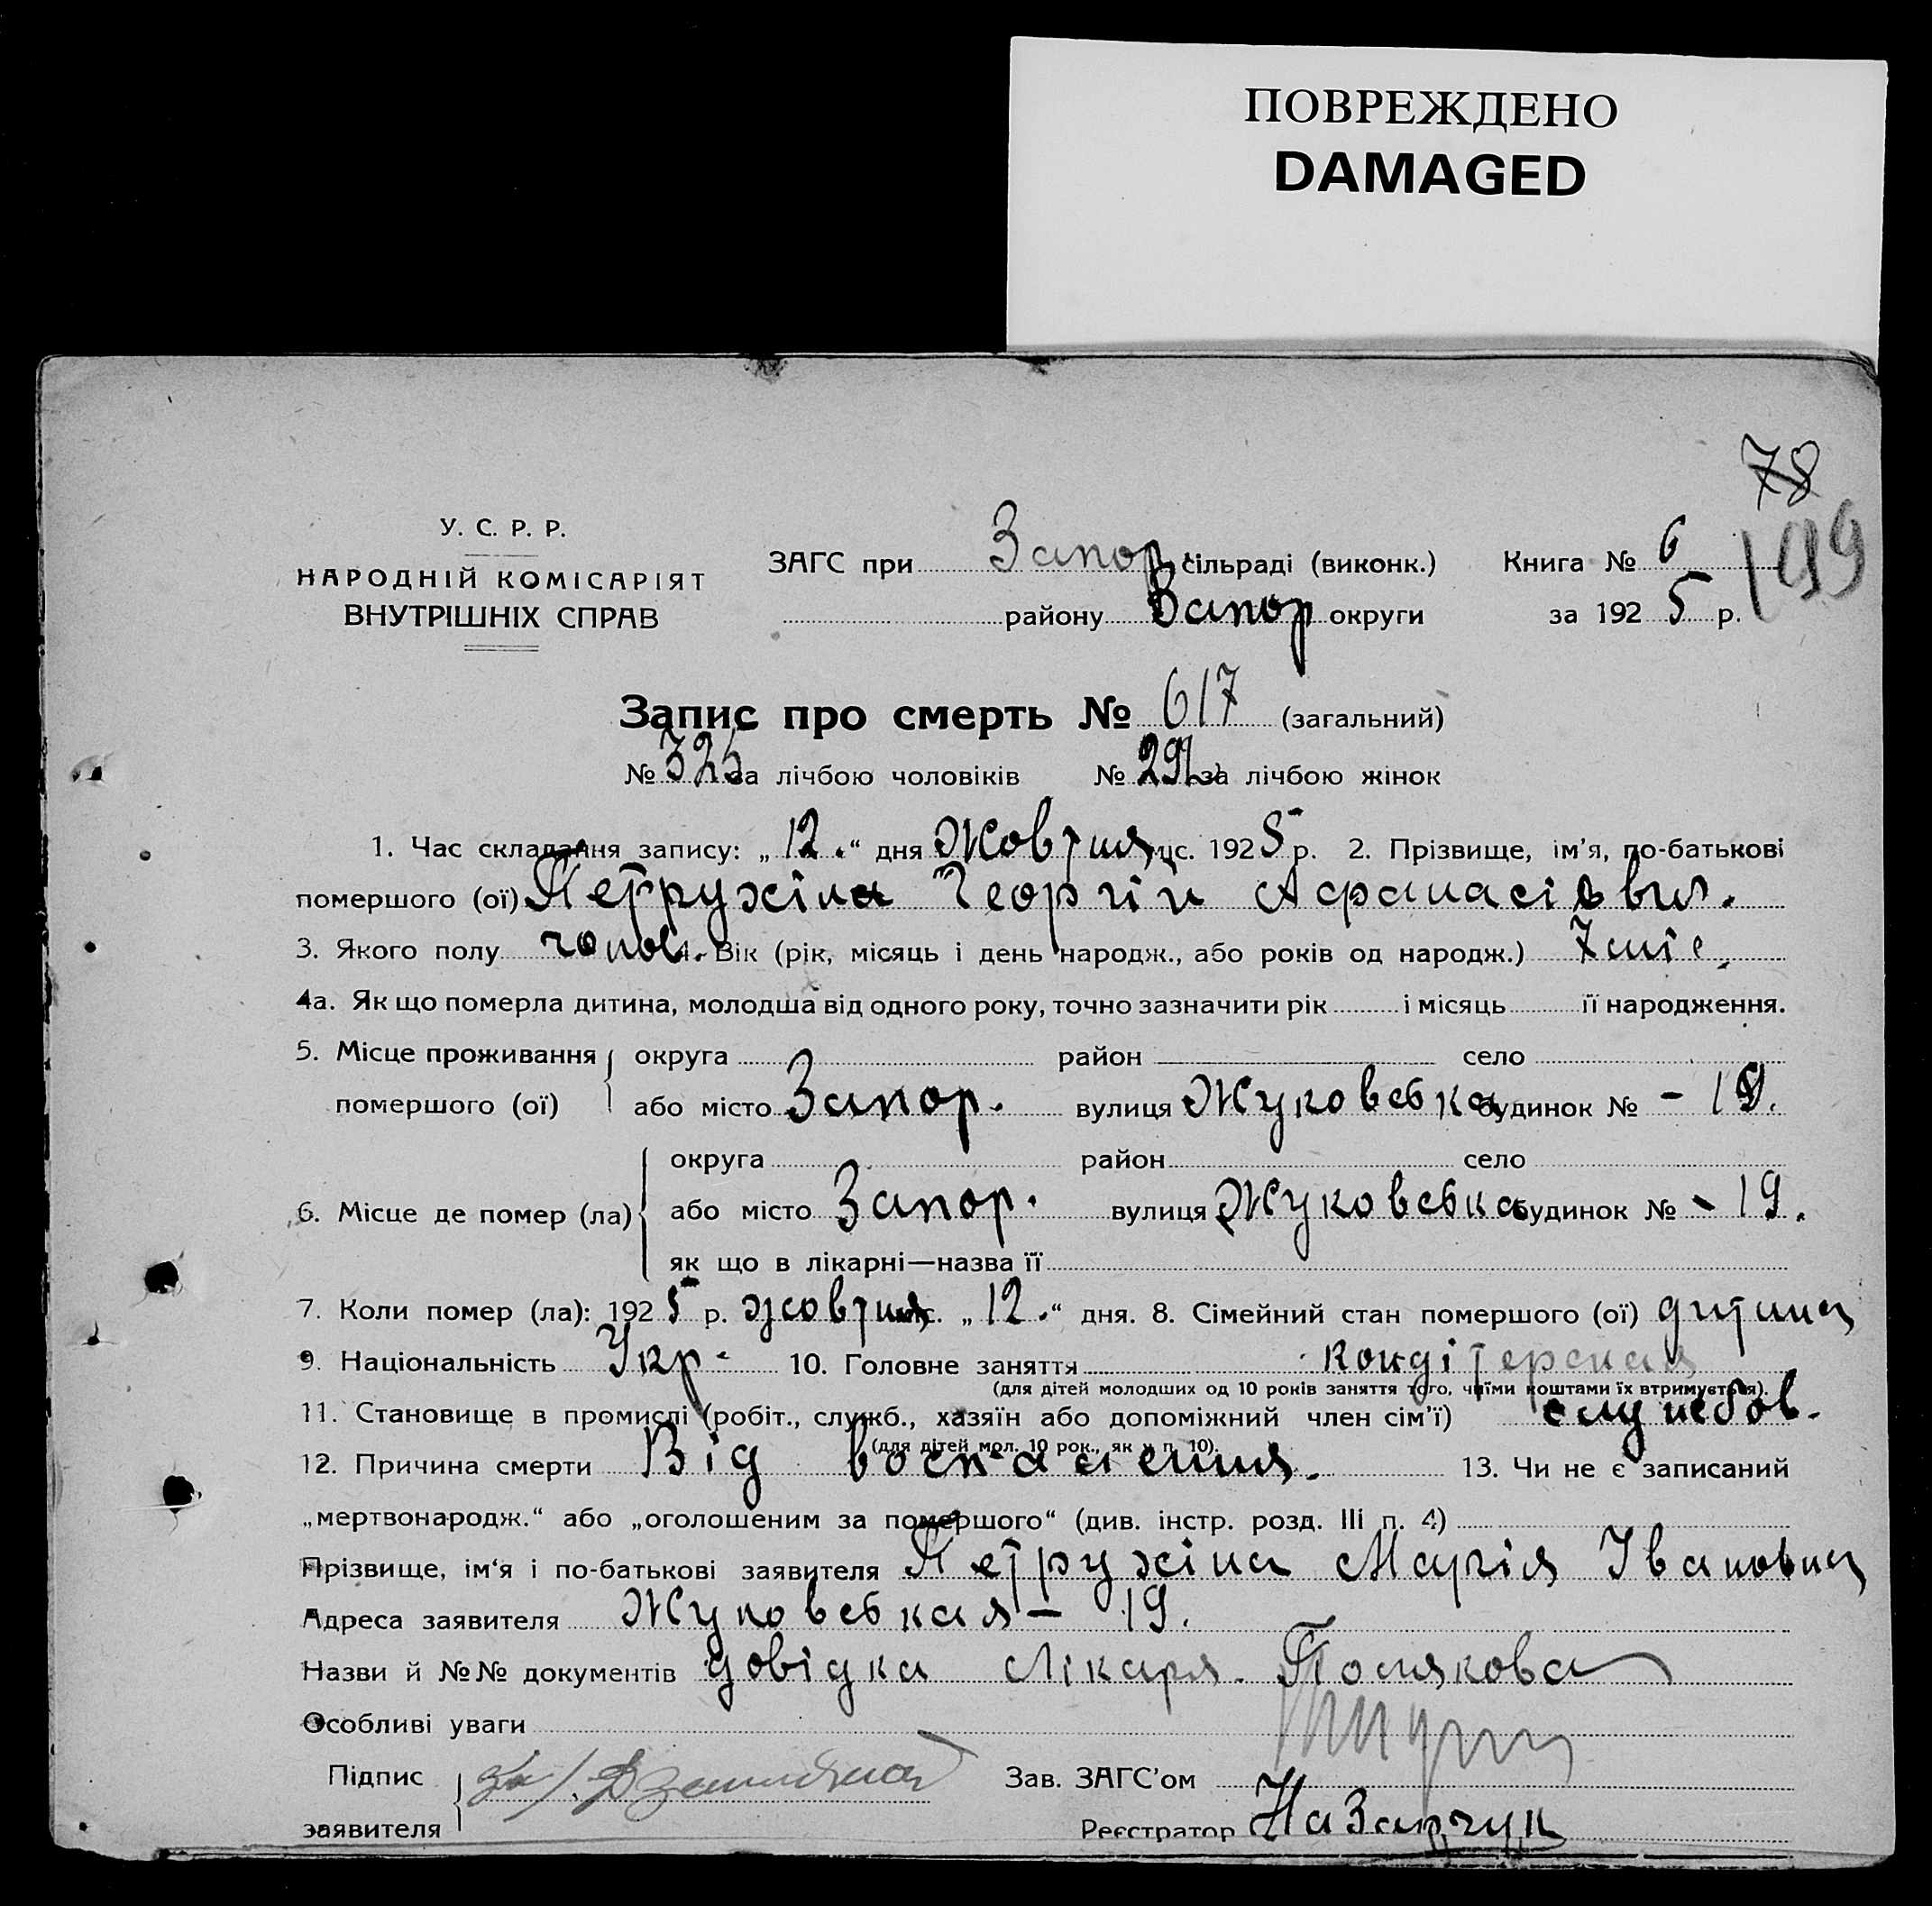 ПОВРЕЖДЕНО
DAMAGED
78
199
У. С. Р. Р.
НАРОДНІЙ КОМІСАРІЯТ
ВНУТРІШНІХ СПРАВ
ЗАГС при Запор. сільраді (виконк.) Книга № 6
району Запор округи за 1925 р.
Запис про смерть № 617 (загальний)
№ 325 за лічбою чоловіків № 292 за лічбою жінок
1. Час складання запису: „12.“ дня Жовтня мця. 1925 р. 2. Прізвище, ім’я, по-батькові
помершого (ої) Петрухіна Георгій Афанасієвич.
3. Якого полу чолов. 4. Вік (рік, місяць і день народж., або років од народж.) 7 міс.
4а. Як що померла дитина, молодша від одного року, точно зазначити рік і місяць її народження.
5. Місце проживання округа район село
помершого (ої) або місто Запор. вулиця Жуковська будинок № – 19.
округа район село
6. Місце де помер (ла) або місто Запор. вулиця Жуковська будинок № - 19.
як що в лікарні—назва її
7. Коли помер (ла): 1925 р. жовтня мця. „12.“ дня. 8. Сімейний стан помершого (ої) дитина
9. Національність Укр. 10. Головне заняття кондітерская
(для дітей молодших од 10 років заняття того, чиїми коштами їх втримується).
11. Становище в промислі (робіт., служб., хазяїн або допоміжний член сім’ї) служебов.
(для дітей мол. 10 рок., як у п. 10).
12. Причина смерти Від воспаления. 13. Чи не є записаний
„мертвонародж.“ або „оголошеним за помершого“ (див. інстр. розд. III п. 4)
Прізвище, ім‘я і по-батькові заявителя Петрухіна Марія Івановна
Адреса заявителя Жуковськая – 19.
Назви й №№ документів довідка лікаря. Полякова
Особливі уваги
Підпис Зав. ЗАГС’ом
заявителя Реєстратор Назарчук